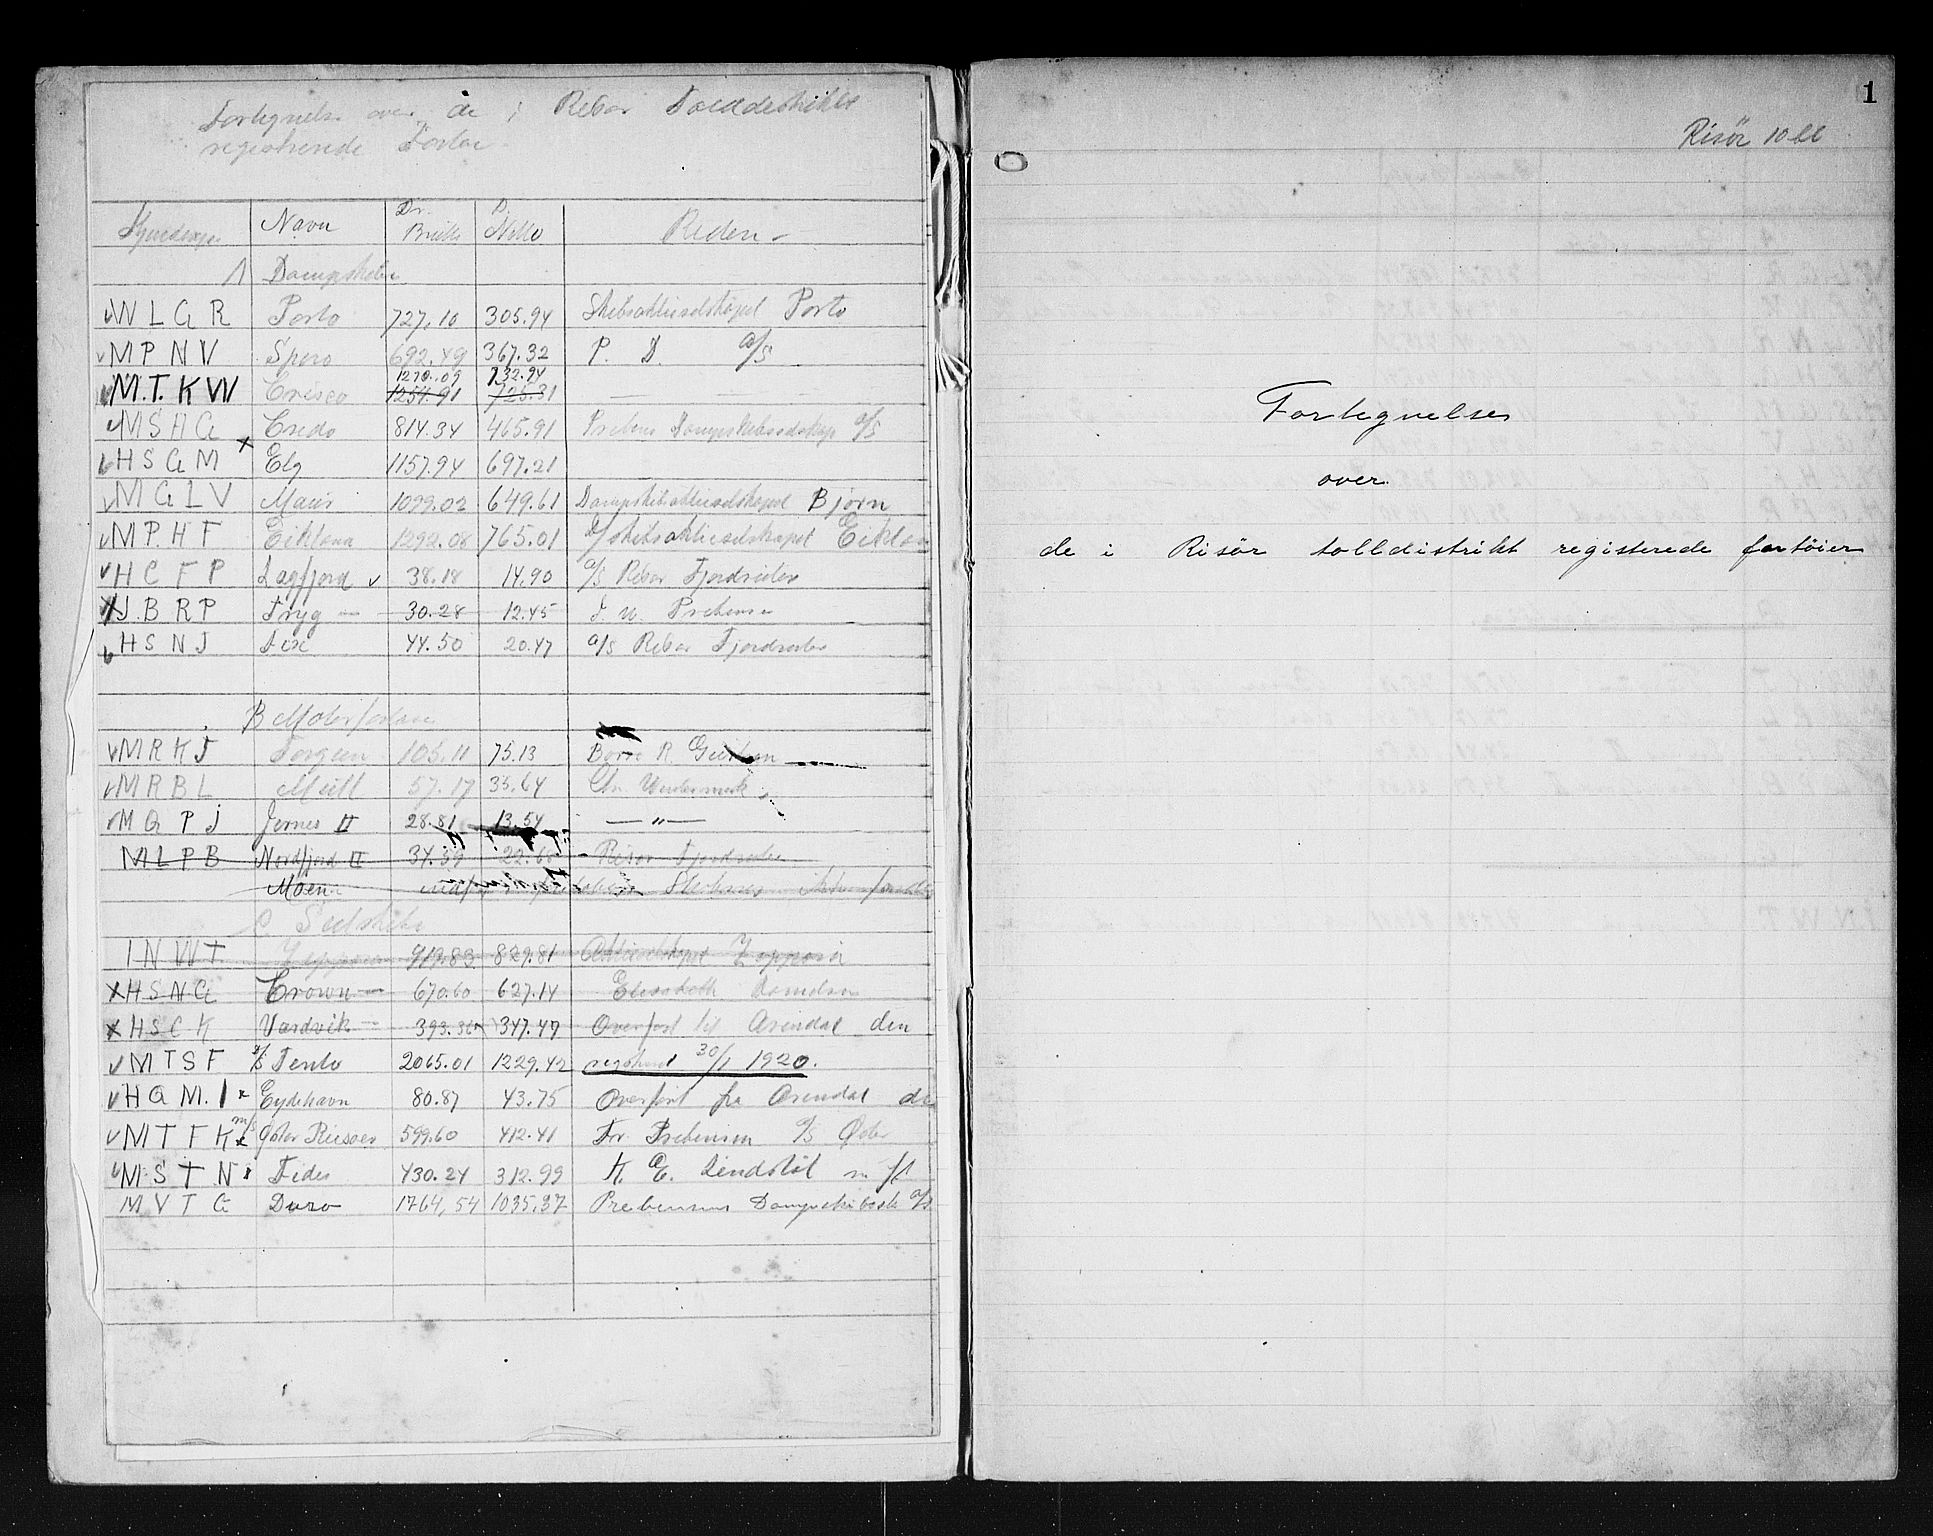 Fortegnelse over de i Risør Tolddistrikts
registrerede
Navn Br. Brutto N. Netto Rederi
Dampskibe
W L G R Porto 727.10 305.94 Skibsaktieselskapet Porto
M P N V Spero 692.49 367.32 P. D. a/s
1270.09 732.94
M.T. K W Cresco 1254.91 725.31
M S H G Credo 814.34 465.91 Prebens Dampskibsselskap a/s
H S G M Elg 1157.94 697.21
M G L V 1099.02 649.61 Dampskibsaktieselskapet Bjørn
M P. H F Eikland 1292.08 765.01 Skibsaktieselskapet
H C F P Lagfjord 38.18 14.90 a/s Risør Fjordruter
J. B R P Tryg 30.28 12.45
H S N J 44.50 20.47 a/s Risør Fjordruter
B Motorfartøier
M R K J 105.11 75.13 Børre R.
M R B L 57.17 35.64 Chr.
M Q P J Jernes II 28.81 13.54 — " —
M L P B Nordfjord II 34.59 22.68 Risør Fjordruter
Moen
C Seilskibe
I N W T 919.83 829.81 Aktieselskapet
H S N G Crown 670.60 627.14 Elisabeth
H S C K Vardvik 393.36 347.47 Overført til Arendal den
M T S F S/S Tento 2065.01 1229.42 registrert 30/1 1920.
H Q M. Eydehavn 80.87 43.75 Overført fra Arendal
M T F K m/s Øster Riisoer 599.60 412.41 Fr. Prebensen a/s Øster
M S T N Fides 430.24 312.99 K. E. Lindstøl
M V T G Duro 1764,54 1035,37 Prebensens Dampskibssk a/s
1
Risör 10 bl
Fortegnelse
over
de i Risør tolldistrikt registerede fartöier